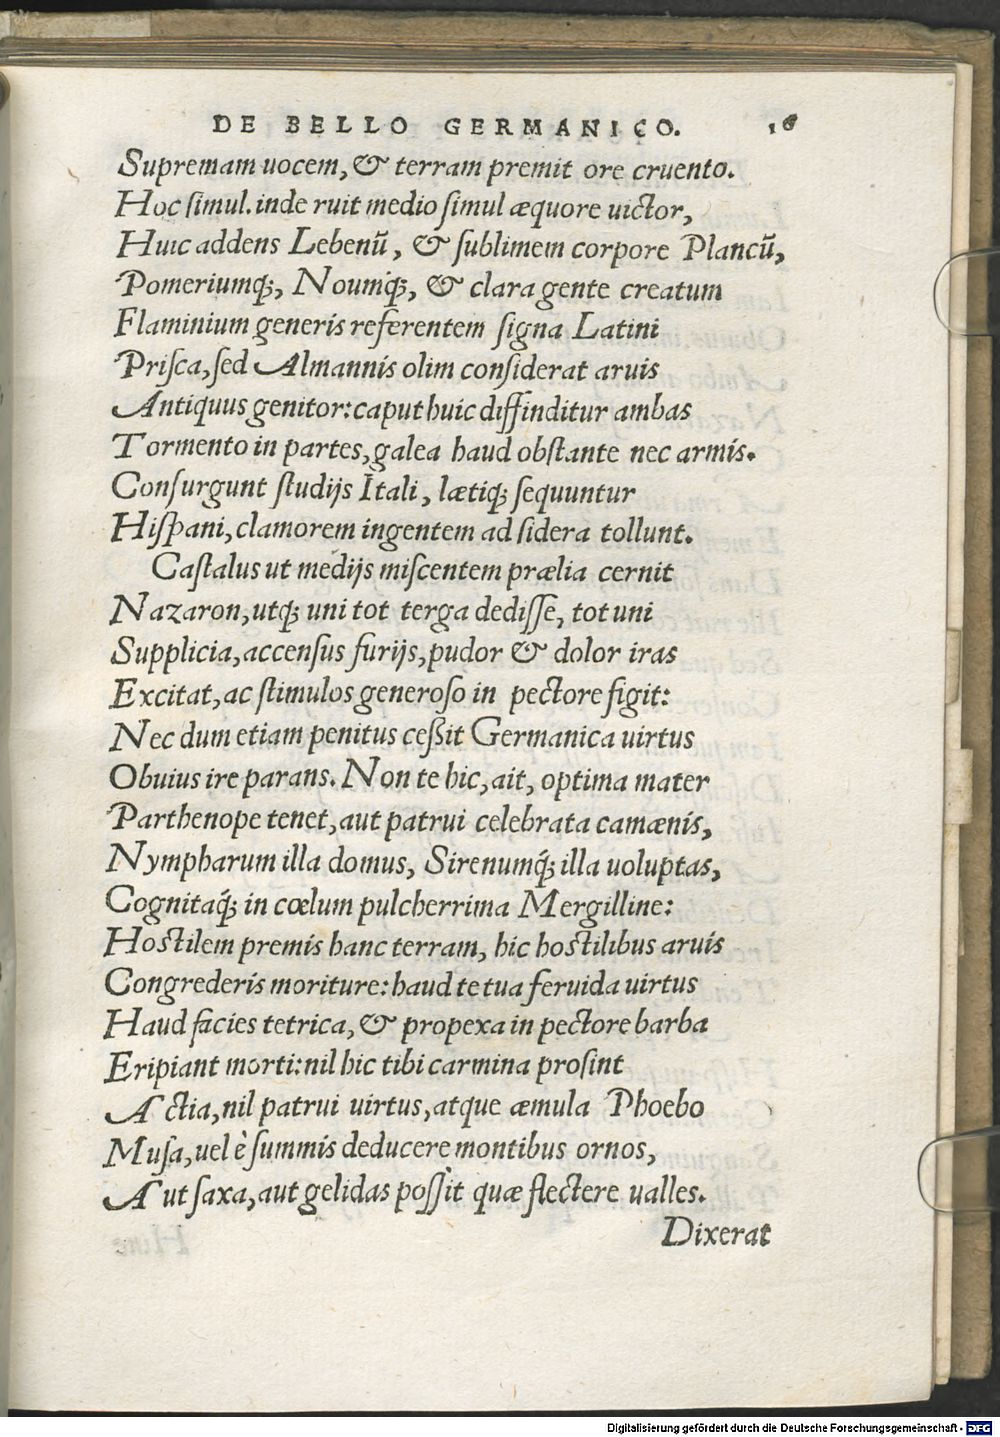 DE BELLO GERMANICO. 16
Supremam uocem, & terram premit ore cruento.
Hoc simul. inde ruit medio simul æquore uictor,
Huic addens Lebenū, & sublimem corpore Plancū,
Pomeriumq;, Noumq́;, & clara gente creatum
Flaminium generis referentem signa Latini
Prisca, sed Almannis olim considerat aruis
Antiquus genitor: caput huic diffinditur ambas
Tormento in partes, galea haud obstante nec armis.
Consurgunt studijs Itali, lætiq; sequuntur
Hispani, clamorem ingentem ad sidera tollunt.
Castalus ut medijs miscentem prælia cernit
Nazaron, utq; uni tot terga dedisse, tot uni
Supplicia, accensus furijs, pudor & dolor iras
Excitat, ac stimulos generoso in pectore figit:
Nec dum etiam penitus ceßit Germanica uirtus
Obuius ire parans. Non te hic, ait, optima mater
Parthenope tenet, aut patrui celebrata camænis,
Nympharum illa domus, Sirenumq́; illa uoluptas,
Cognitaq́; in cœlum pulcherrima Mergilline:
Hostilem premis hanc terram, hic hostilibus aruis
Congrederis moriture: haud te tua feruida uirtus
Haud facies tetrica, & propexa in pectore barba
Eripiant morti: nil hic tibi carmina prosint
Actia, nil patrui uirtus, atque æmula Phoebo
Musa, uel è summis deducere montibus ornos,
Aut saxa, aut gelidas possit quæ flectere ualles.
Dixerat
Digitalisierung gefördert durch die Deutsche Forschungsgemeinschaft - DFG